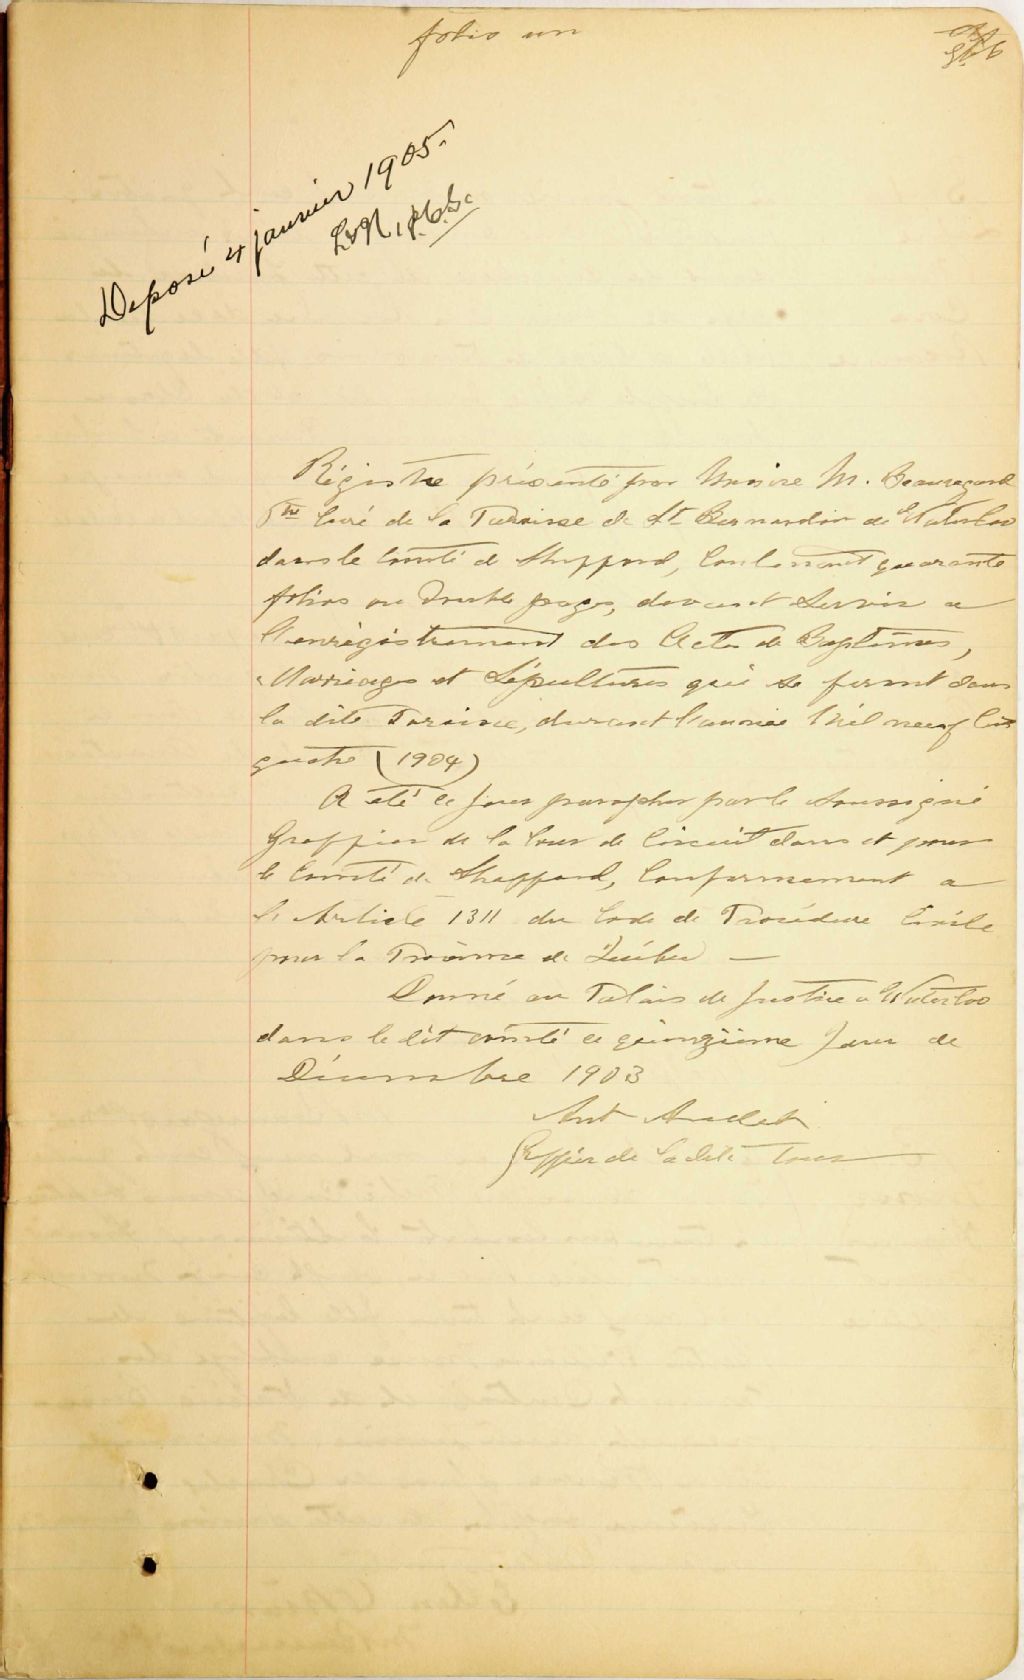 folio un
Deposé 4 janvier 1905.
Régistre présenté par Messire M. Beauregard
Ptre Curé de la Paroisse de St Bernardin de Waterloo
dans le Comté de Shefford, Contenant quarante
folios ou Double pages, devant Servir a
l'enrégistrement des Actes de Baptêmes,
Marriages et Sépultures qui se feront dans
la dite Paroisse, durant l'année Mil neuf Cent
quatre (1904)
A été ce jour parapher par le Soussigné
Greffier de la Cour de Circuit dans et pour
le Comté de Shefford, Conformement a
l'Article 1311 du Code de Procédure Civile
pour la Province de Québec —
Donné au Palais de Justice a Waterloo
dans le dit comté ce quinzième Jour de
Décembre 1903
Ant Audet
Greffier de la dite Cour